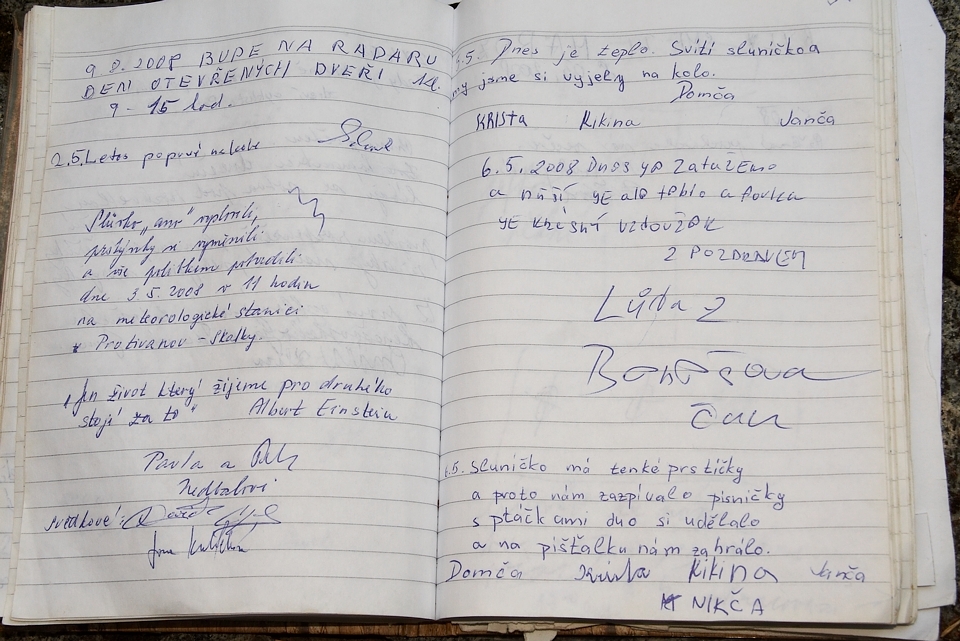 9 8. 2008 BUDE NA RADARU
DEN OTEVŘENÝCH DVEŘÍ
9 - 15 hod.
2.5. Letos poprvé nebude
Slůvko „ano" vyplouli,
prstýnky si vyměnili
a vše polibkem potvrdili
dne 3.5.2008 v 11 hodin
na meteorologické stanici
v Protivanov - Skalky.
„Jen život který žijeme pro druhého
stojí za to" Albert Einstein
Pavla a
Nedbalovi
Svědkové:
5. Dnes je teplo. Svítí sluníčko a
my jsme si vyjely na kolo.
Domča
KRISTA Kikina Janča
6.5. 2008 DNES JE ZATAŽENO
a
JE KRÁSNÝ VZDOUŽEK
Z POZDRAVEM
Lůďa Z
.5. sluníčko má tenké prstíčky
a proto nám zazpívalo písničky
s ptáčkami duo si udělalo
a na píšťalku nám zahrálo.
Domča Krista Kikina Janča
NIKČA